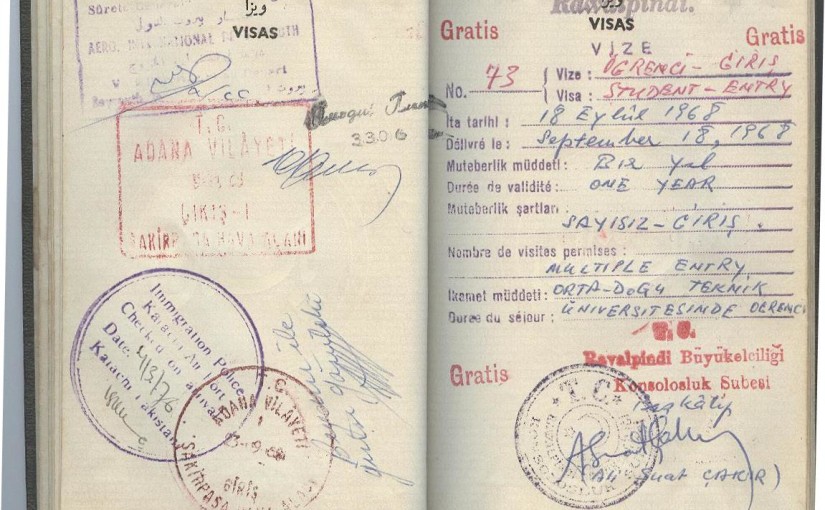 ویزا
VISAS
Sûreté
AERO. INTERNATIONAL
3306
T.C.
ADANA VİLAYETİ
ÇIKIŞ-1
ŞAKİRPAŞA HAVA ALANI
Immigration Police
Karachi Air Port
Checked on arrival
Date 4/3/76
Karachi (Pakistan)
T.C
ADANA VİLAYETİ
1
GİRİŞ
ŞAKİRPAŞA
ile
Rawalpindi.
VISAS
Gratis VİZE Gratis
No. 73 Vize : ÖĞRENCİ-GİRİŞ
Visa : STUDENT-ENTRY
Ita tarihi : 18 Eylül 1968
Délivré le : September 18, 1968
Muteberlik müddeti: Bir Yıl
Durée de validité: ONE YEAR
Muteberlik şartları
SAYISIZ-GİRİŞ.
Nombre de visites permises :
MULTIPLE ENTRY
Ikamet müddeti: ORTA-DOĞU TEKNİK
Duree du séjour : ÜNİVERSİTESİNDE ÖĞRENCİ
T.C.
Ravalpindi Büyükelciliği
Gratis Konsolosluk Subesi
Başkâtip
T.C.
(Ali Suat ÇAKIR)